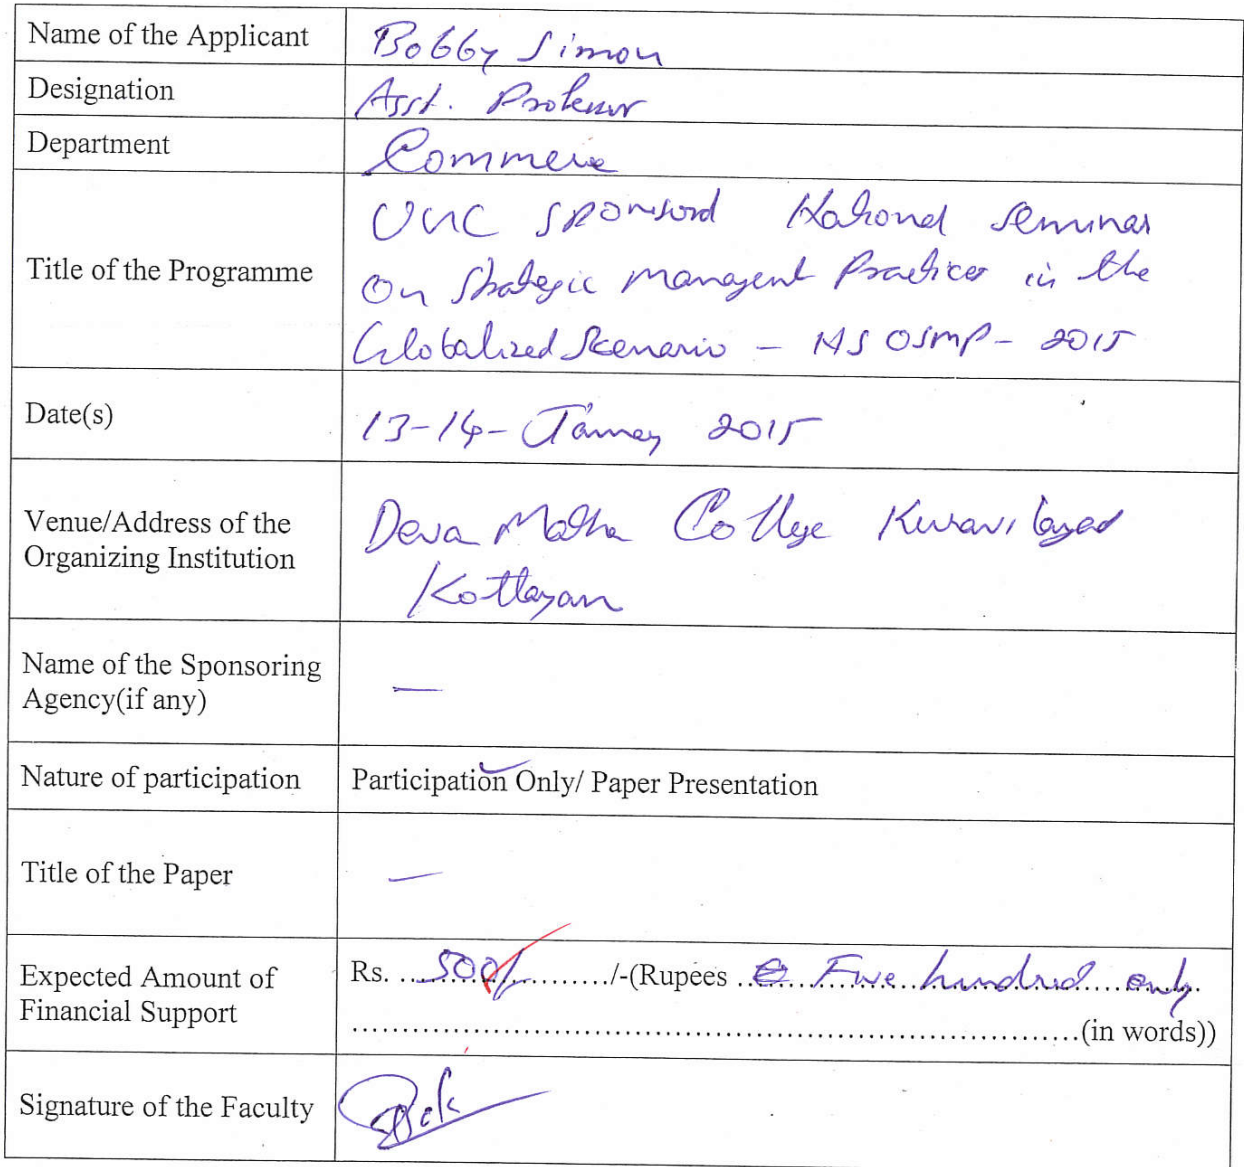 Name of the Applicant Bobby Simon
Designation Asst. Professor
Department Commerce
Title of the Programme
UGC Sponsord National Seminar
on Strategic Managent Practices in the
Globalized Scenario – NSOSMP – 2015
Date(s) 13-14- January 2015
Venue/Address of the
Organizing Institution
Deva Matha College Kuravilangad
Kottayam
Name of the Sponsoring
Agency(if any)
—
Nature of participation Participation Only/ Paper Presentation
Title of the Paper —
Expected Amount of
Financial Support
Rs. ...500/-............/-(Rupees ... Five hundred only
...(in words))
Signature of the Faculty